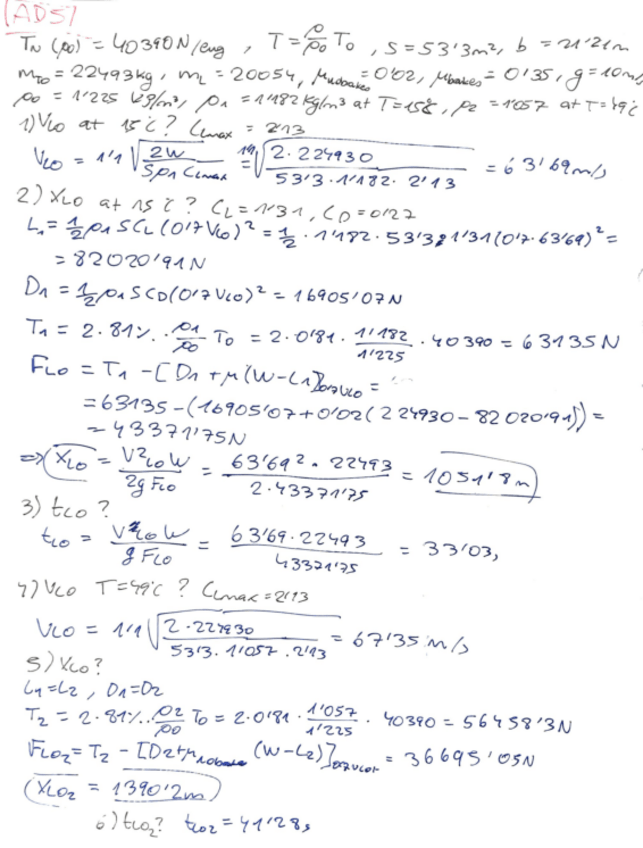 (AD5)
TN (ρ0) = 40390N/eng , T = ρ/ρ0 T0 , S = 53'3m², b = 21'21m
mTO = 22493kg, mL = 20054, μnobakes = 0'02, μbakes = 0'35, g = 10m/s
ρ0 = 1'225 kg/m³, ρ1 = 1'182 kg/m³ at T=15º, ρ2 = 1'057 at T=49ºc
1) VLO at 15ºc? CLmax = 2'13
VLO = 1'1 √(2W / Sρ1 CLmax) = 1'1 √(2·224930 / 53'3·1'182·2'13) = 63'69m/s
2) XLO at 15ºc? CL = 1'31, CD = 0'27
L1 = 1/2 ρ1 S CL (0'7 VLO)² = 1/2 · 1'182 · 53'3 · 1'31 (0'7·63'69)² =
= 82020'91N
D1 = 1/2 ρ1 S CD (0'7 VLO)² = 16905'07N
T1 = 2·81% · ρ1/ρ0 T0 = 2·0'81 · 1'182/1'225 · 40390 = 63135N
FLO = T1 - [D1 + μ(W-L1)]0'7VLO =
= 63135 - (16905'07 + 0'02(224930 - 82020'91)) =
= 43371'75N
⇒ XLO = V²LO W / 2g FLO = 63'69² · 22493 / 2·43371'75 = 1051'8m
3) tLO ?
tLO = VLO W / g FLO = 63'69·22493 / 43371'75 = 33'03s
4) VLO T=49ºc ? CLmax = 2'13
VLO = 1'1 √(2·224930 / 53'3·1'057·2'13) = 67'35 m/s
5) XLO?
L1=L2, D1=D2
T2 = 2·81% · ρ2/ρ0 T0 = 2·0'81 · 1'057/1'225 · 40390 = 56458'3N
FLO2 = T2 - [D2+μnobakes (W-L2)]0'7VLO1 = 36695'05N
XLO2 = 1390'2m
6) tLO2? tLO2 = 41'28s